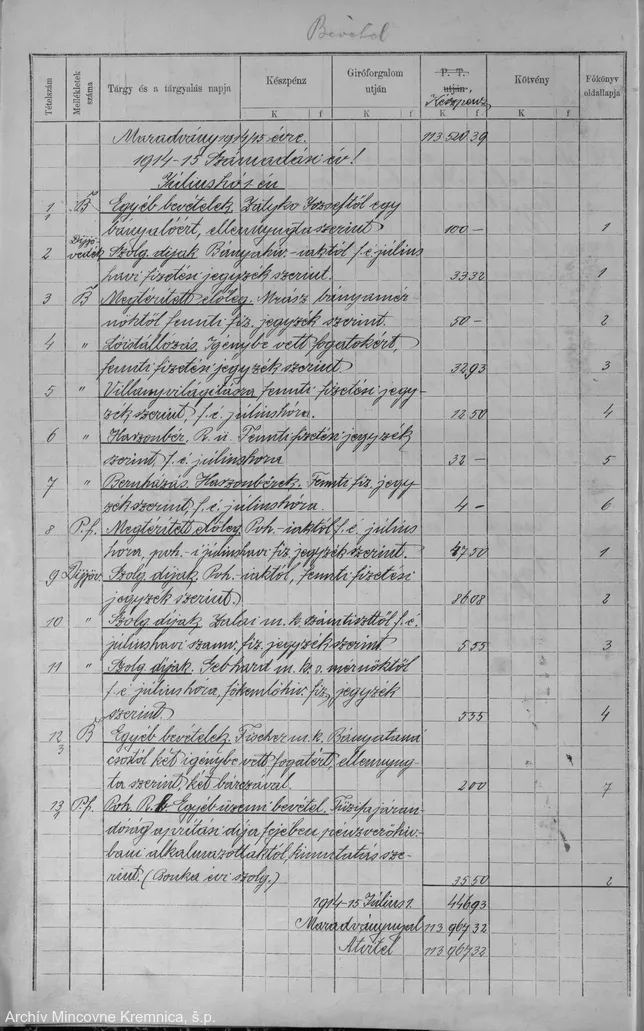 Bevétel
Tételszám
Mellékletek száma
Tárgy és a tárgyalás napja
Készpénz
Giróforgalom utján
P. T. utján,
Készpénz
Kötvény
Főkönyv oldallapja
K f K f K f K f
Maradvány 1914/15 évre. 113 520 39
1914-15 Számadási év!
Július hó 1 én
1/1 B Egyéb bevételek, Zalyko Józseftől egy
bányalóért, ellennyugta szerint 100 — 1
2 Díjjövedék Szolg. díjak Bányahiv.-iaktól f. é. július
havi fizetési jegyzék szerint. 33 32 1
3 B Megtérített előleg. Mrász bányamér
nöktől fennti fiz. jegyzék szerint. 50 — 2
4 " Lóistállozás, Igénybe vett fogatokért,
fennti fizetési jegyzék szerint. 32 93 3
5 " Villanyvilágításra fennti fizetési jegy-
zék szerint, f. é. július hóra. 12 50 4
6 " Haszonbér, R. ü. Fennti fizetési jegyzék
szerint, f. é. július hóra 32 — 5
7 " Beruházás. Haszonbérek. Fennti fiz. jegy-
zék szerint, f. é. július hóra. 4 — 6
8 P.f. Megtérített előleg Poh.-iaktól f. é. július
hóra, poh.-i július havi fiz. jegyzék szerint. 47 50 1
9 Díjjöv. Szolg. díjak Poh.-iaktól, fennti fizetési
jegyzék szerint. 86 08 2
10 " Szolg. díjak, Zalai m. k. számtiszttől f. é.
július havi számv. fiz. jegyzék szerint 5 55 3
11 " Szolg. díjak. Gebhard m. k. o. mérnöktől
f. é. július hóra, főkemlőhiv. fiz. jegyzék
szerint. 5 35 4
12/3 B Egyéb bevételek, Fischer m. k. Bányataná
csostól két igénybe vett fogatért, ellennyug-
ta szerint, két bárczával. 2 00 7
13 P.f. Poh. R. k. Egyéb üzemi bevétel. Tűzifa járan-
dóság aprítási díja fejében pénzverőhiv-
bani alkalmazottaktól, kimutatás sze-
rint. 35 50 2
1914-15 Július 1. 446 93
Maradványnyal 113 967 32
Átvitel 113 967 32
Archív Mincovne Kremnica, š.p.